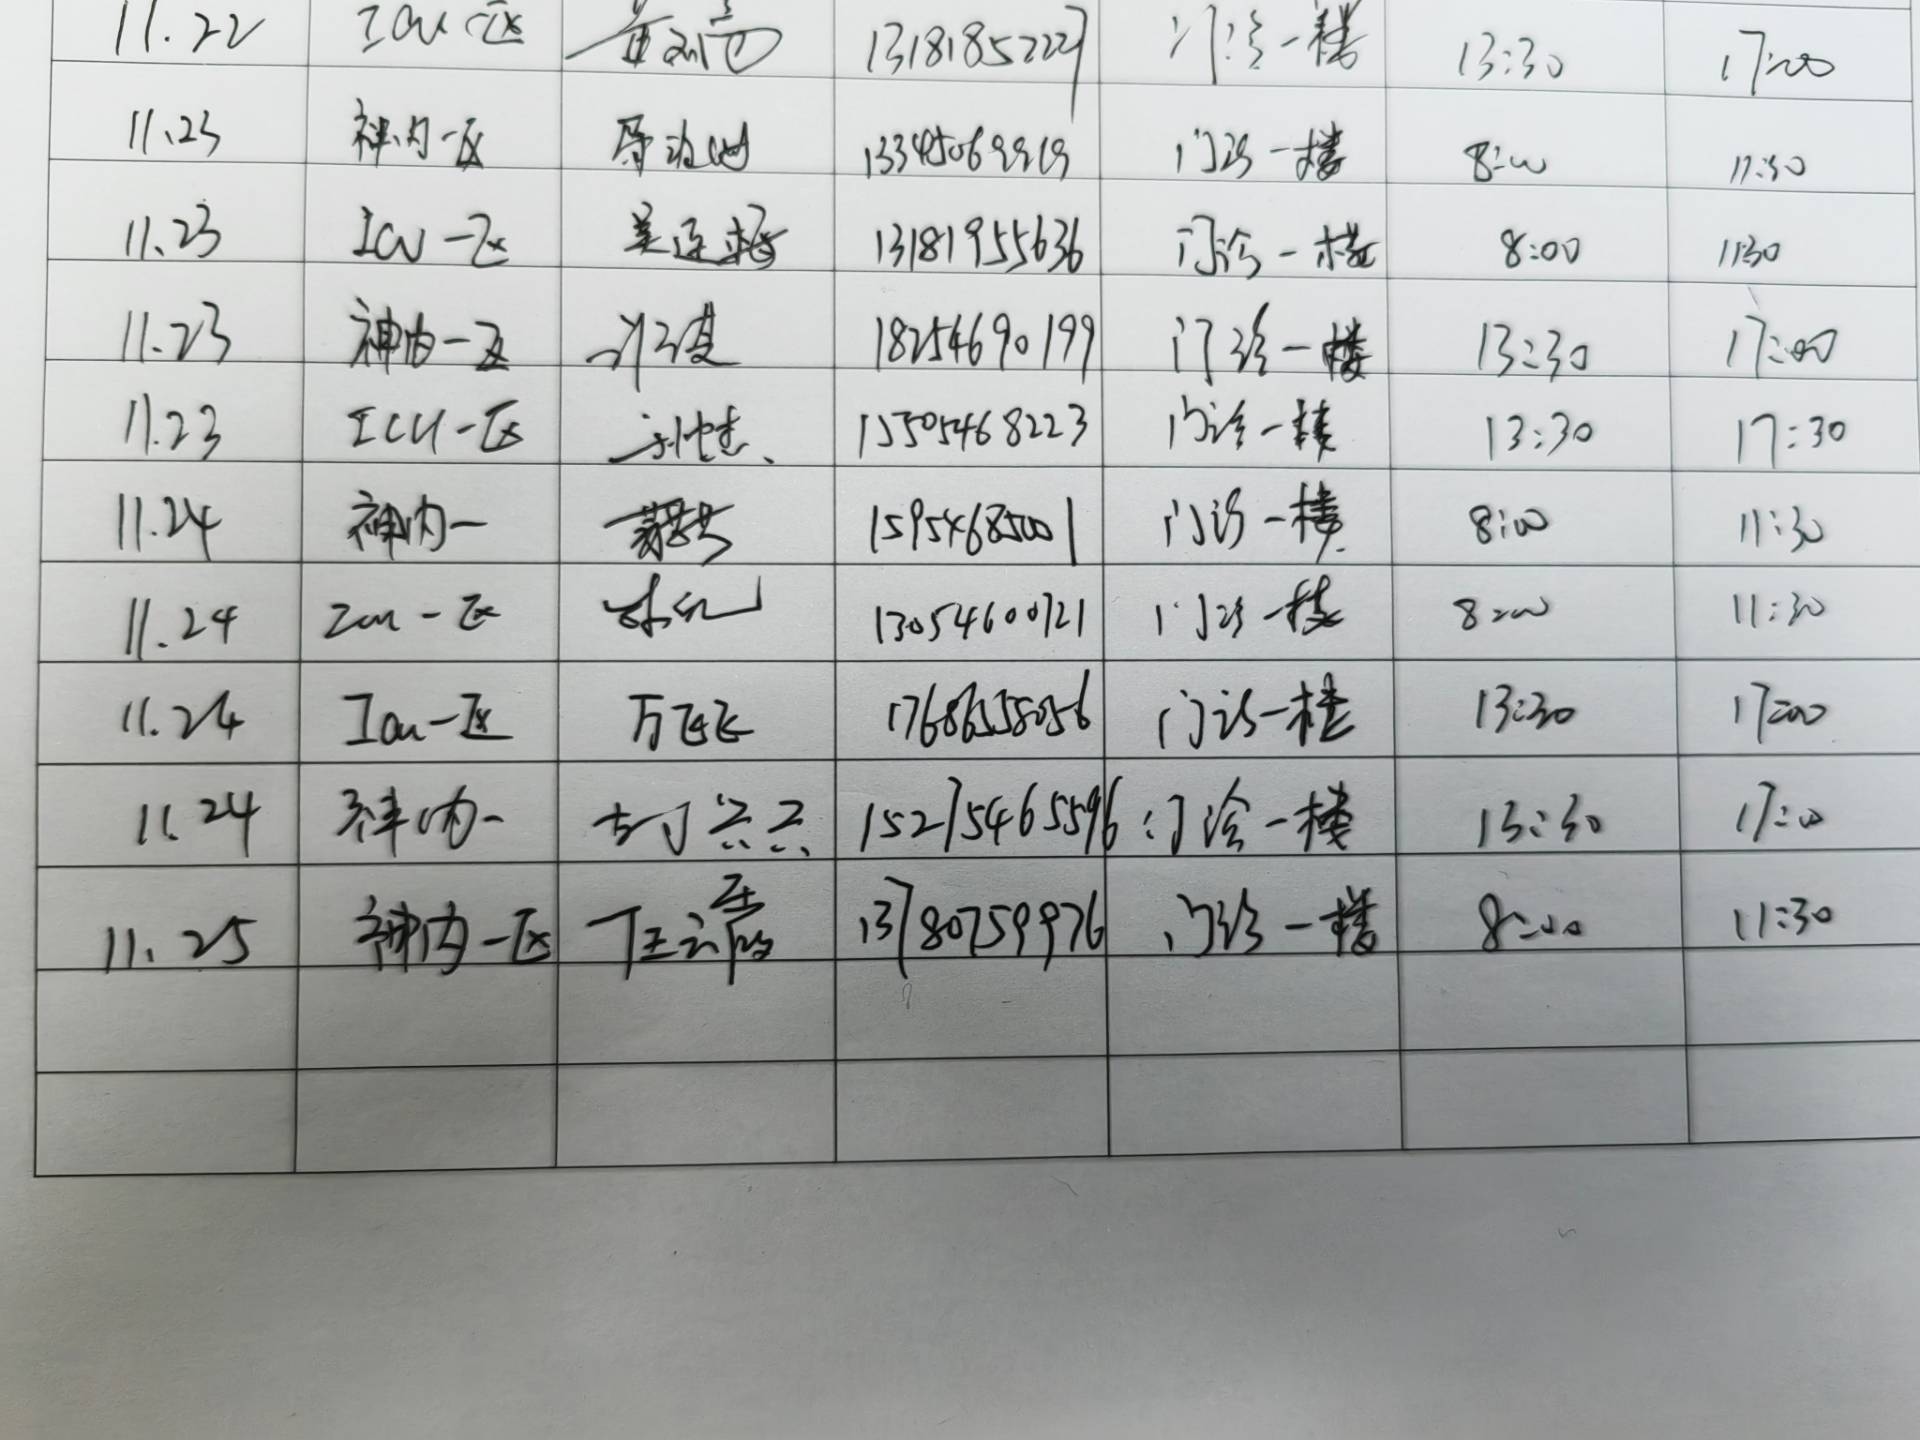 11.22 ICU一区 13181852227 门诊一楼 13:30 17:00
11.23 神内一区 门诊一楼 8:00 11:30
11.23 ICU一区 13181955636 门诊一楼 8:00 11:30
11.23 神内一区 18254690199 门诊一楼 13:30 17:00
11.23 ICU一区 15505468223 门诊一楼 13:30 17:30
11.24 神内一 15954685001 门诊一楼 8:00 11:30
11.24 ICU一区 13054600721 门诊一楼 8:00 11:30
11.24 ICU一区 万飞飞 17686558056 门诊一楼 13:30 17:00
11.24 神内一 15275465596 门诊一楼 13:30 17:00
11.25 神内一区 13780759976 门诊一楼 8:00 11:30